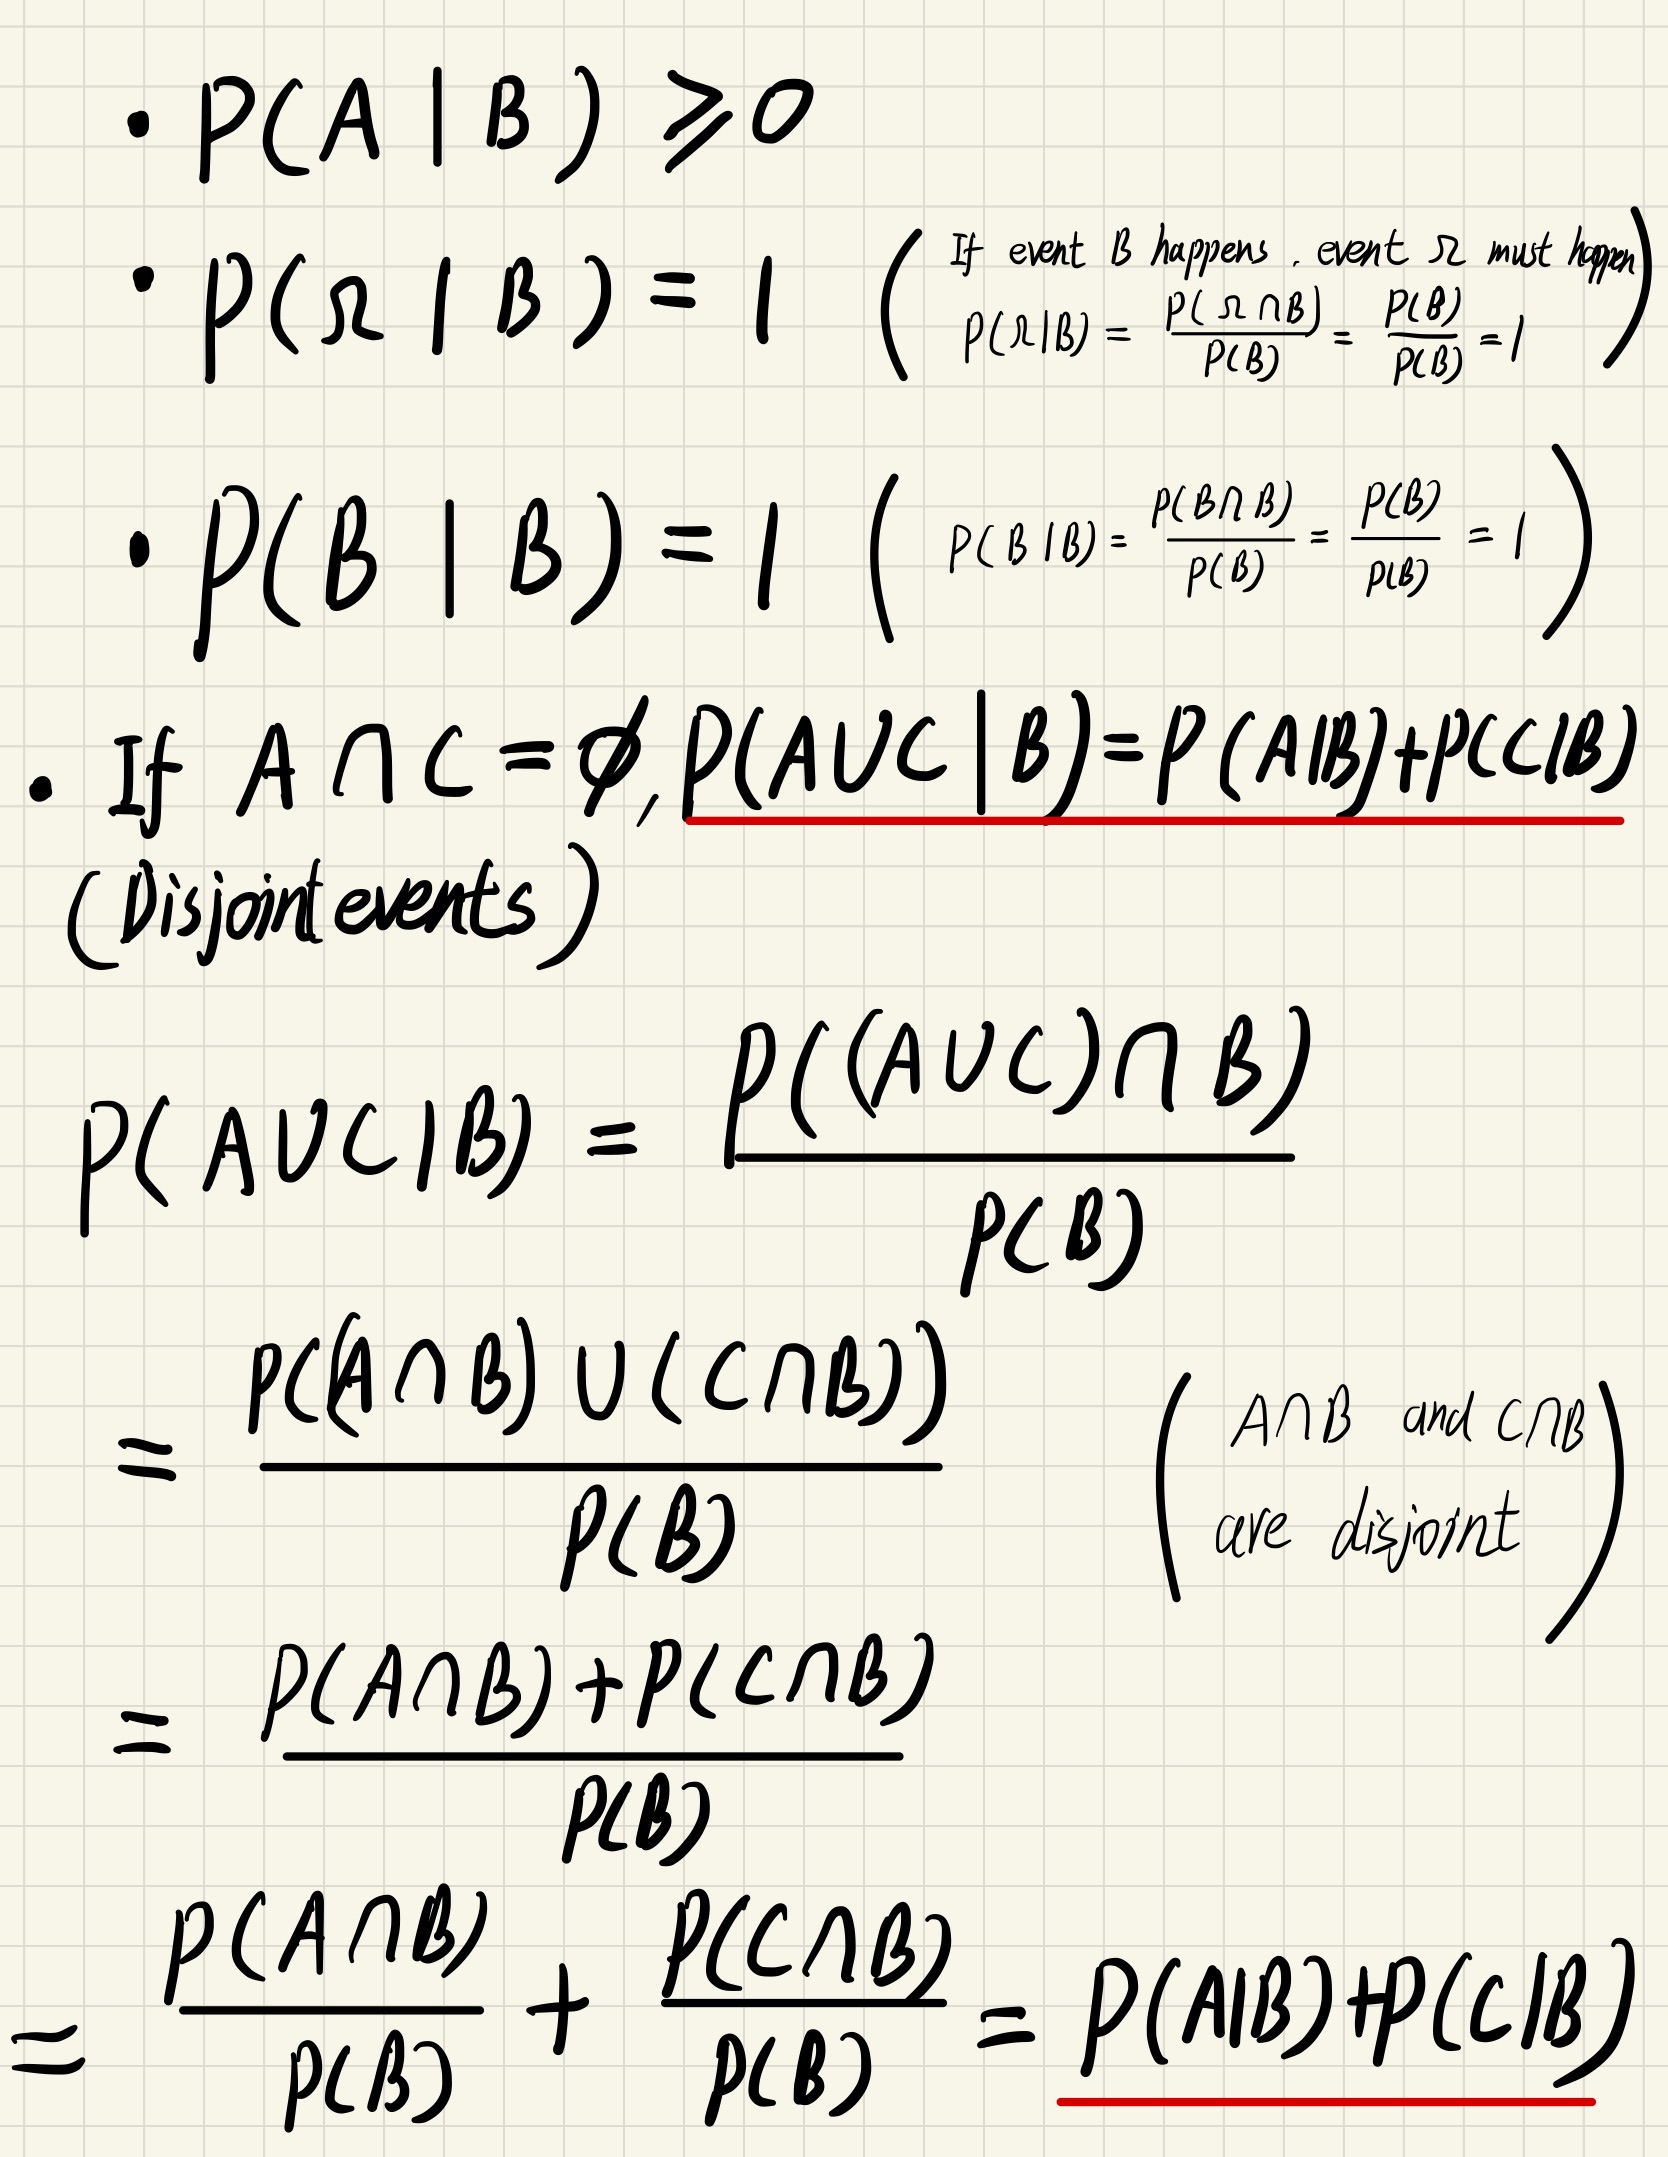 • P(A | B) ≥ 0
• P(Ω | B) = 1 (If event B happens, event Ω must happen
P(Ω|B) = P(Ω ∩ B)/P(B) = P(B)/P(B) = 1)
• P(B | B) = 1 (P(B|B) = P(B∩B)/P(B) = P(B)/P(B) = 1)
• If A ∩ C = ∅, P(A∪C | B) = P(A|B)+P(C|B)
(Disjoint events)
P(A∪C|B) = P((A∪C)∩B)/P(B)
= P((A∩B)∪(C∩B))/P(B) (A∩B and C∩B
are disjoint)
= P(A∩B)+P(C∩B)/P(B)
= P(A∩B)/P(B) + P(C∩B)/P(B) = P(A|B)+P(C|B)